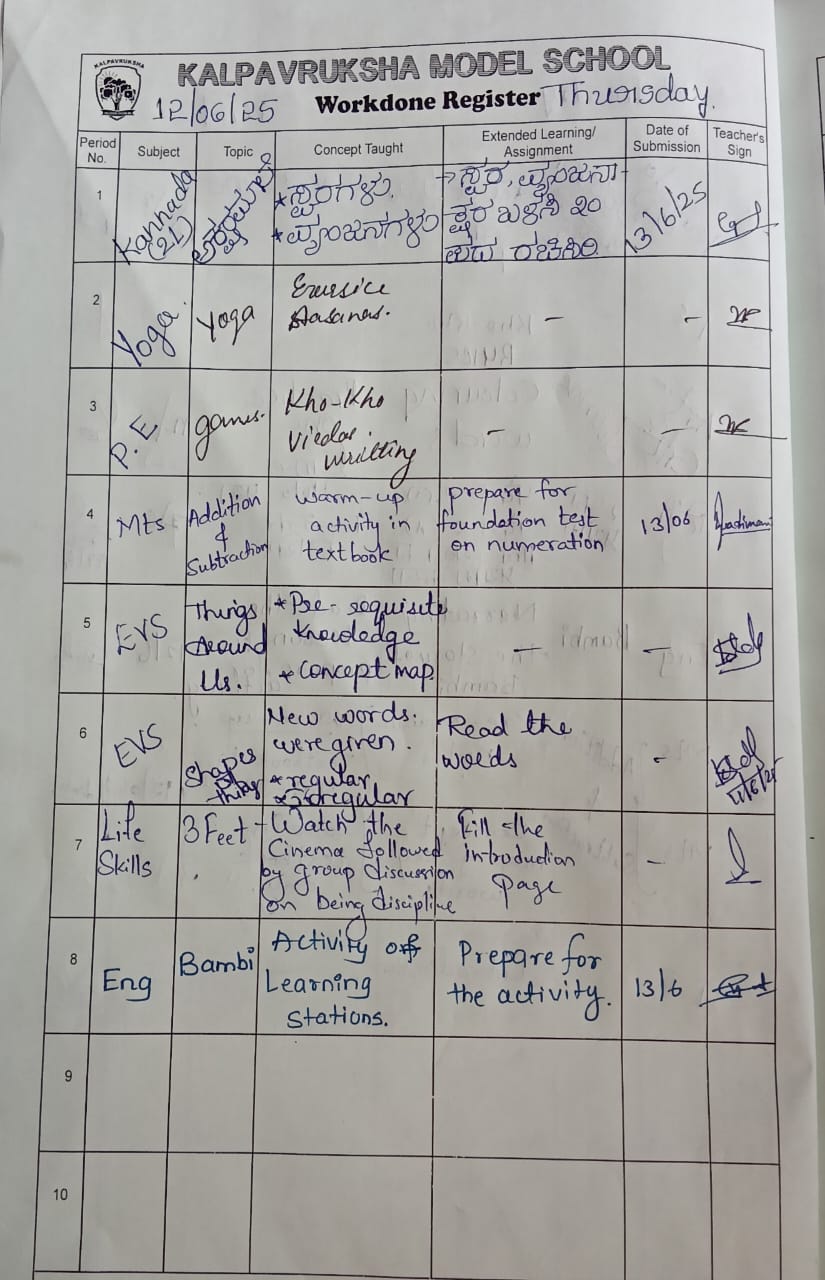 KALPAVRUKSHA
KALPAVRUKSHA MODEL SCHOOL
12/06/25 Workdone Register Thursday.
Period No. Subject Topic Concept Taught Extended Learning/ Assignment Date of Submission Teacher's Sign
1 Kannada (2L) ಅಕ್ಷರಮಾಲೆ
* ಸ್ವರಗಳು.
* ವ್ಯಂಜನಗಳು
→ ಸ್ವರ, ವ್ಯಂಜನಾ-
ಕ್ಷರ ಬಳಸಿ ೨೦
ಪದ ರಚಿಸಿರಿ.
13/6/25
2 Yoga. Yoga
Exersice
Aasanas.
- -
3 P.E games.
Kho-Kho
writting
- -
4 Mts
Addition
&
Subtraction
warm-up
activity in
textbook
prepare for
foundation test
on numeration
13/06
5 EVS
Things
Around
Us.
* Pre-requisite
knowledge
* concept map.
- -
6 EVS
Shapes
of
things
New words.
were given.
* regular
* irregular
Read the
words
-
7 Life
Skills
3 Feet
- Watch the
Cinema followed
by group discussion
on being discipline
Fill the
introduction
page
-
8 Eng Bambi
Activity of
Learning
Stations.
Prepare for
the activity.
13/6
9
10